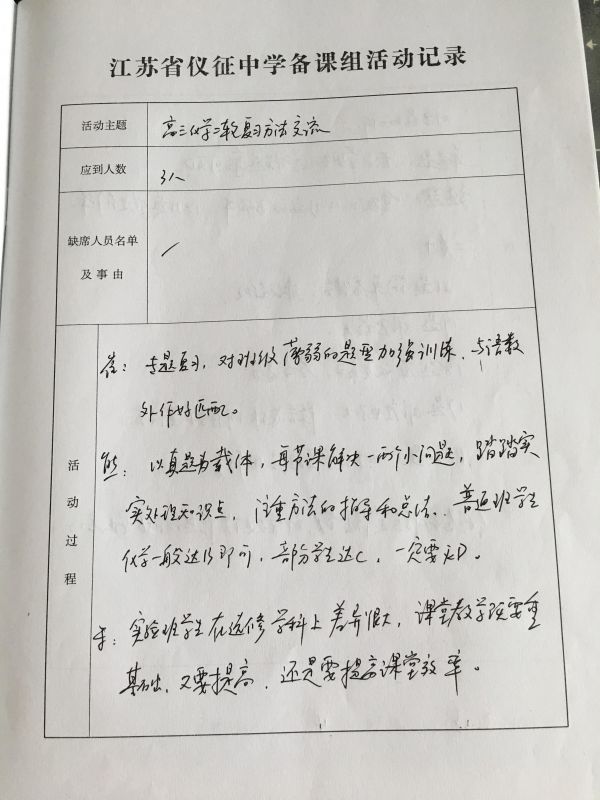 江苏省仪征中学备课组活动记录
活动主题
高三化学二轮复习方法交流
应到人数
3人
缺席人员名单
及事由
/
活动过程
崔：专题复习，对班级薄弱的题型加强训练，与语数
外作好匹配。
熊：以真题为载体，每节课解决一两个小问题，踏踏实
实处理知识点，注重方法的指导和总结。普通班学生
化学一般达B即可，部分学生达C，一定要无D。
实验班学生在选修学科上差异很大，课堂教学既要重
基础，又要提高，还是要提高课堂效率。